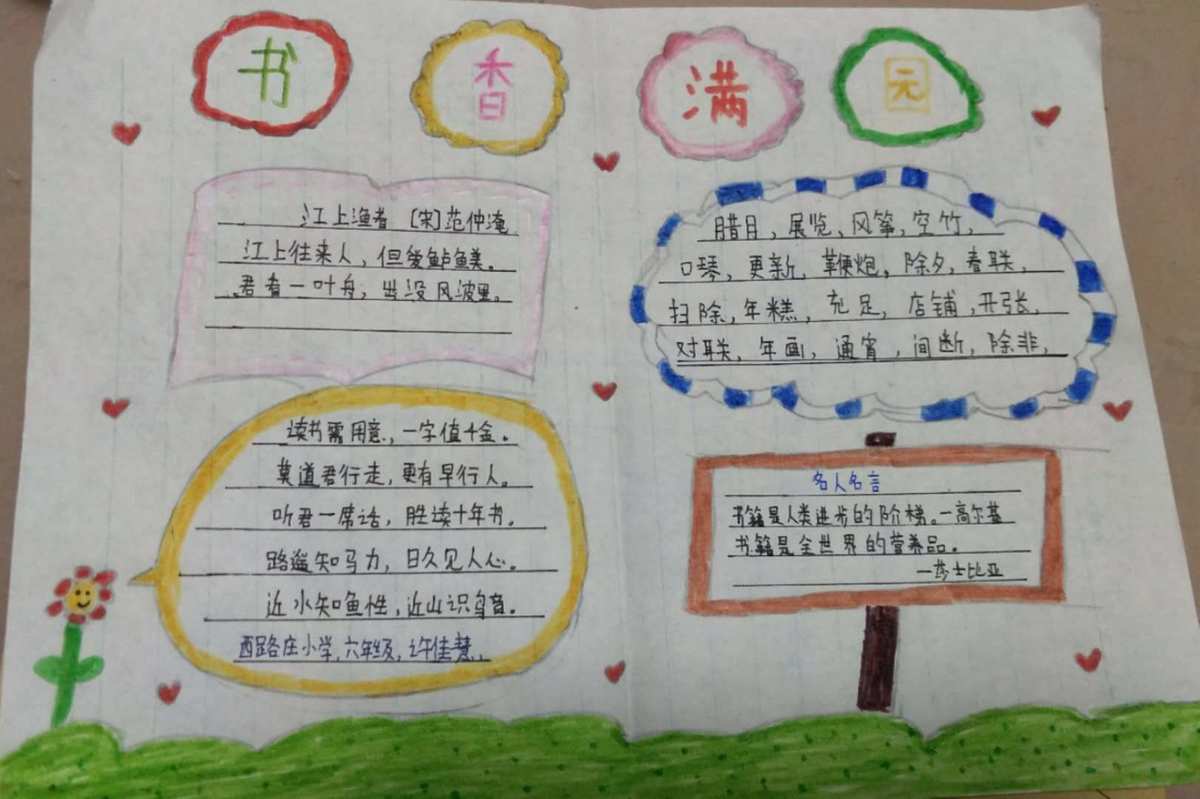 书香满园
江上渔者 [宋]范仲淹
江上往来人，但爱鲈鱼美。
君看一叶舟，出没风波里。
腊月，展览、风筝，空竹，
口琴，更新，鞭炮。除夕，春联，
扫除，年糕，充足，店铺，开张，
对联，年画，通宵，间断，除非，
读书需用意，一字值千金。
莫道君行走，更有早行人。
听君一席话，胜读十年书。
路遥知马力，日久见人心。
近水知鱼性，近山识鸟音。
西路庄小学，六年级，许佳慧，
名人名言
书籍是人类进步的阶梯。—高尔基
书籍是全世界的营养品。
—莎士比亚